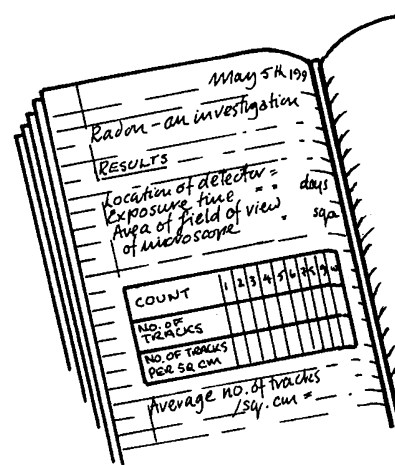 May 5th 199
Radon - an investigation
RESULTS
Location of detector =
Exposure time = = days
Area of field of view
of microscope
COUNT 1 2 3 4 5 6 7 8 9 10
NO. OF
TRACKS
NO. OF TRACKS
PER SQ CM
Average no. of tracks
/sq. cm =